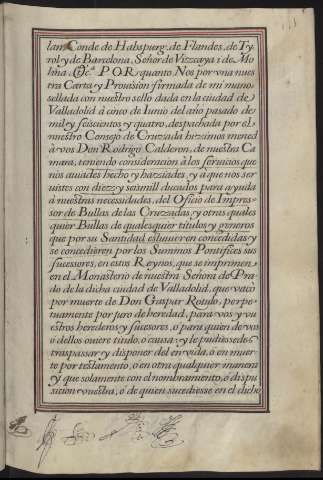 lan, Conde de Habspurg, de Flandes, de Ty
rol, y de Barcelona, Señor de Vizcaya i de Mo
lina, &c.ª POR quanto Nos por vna nues
tra Carta, y Prouision firmada de mi mano
sellada con nuestro sello dada en la ciudad de
Valladolid à cinco de Iunio del año pasado de
mil y seiscientos y quatro, despachada por el
nuestro Consejo de Cruzada hezimos merced
à vos Don Rodrigo Calderon, de nuestra Ca
mara, teniendo consideracion à los seruicios que
nos auiades hecho y haziades, y à que nos ser
uistes con diez y seis mill ducados para ayuda
à nuestras necessidades, del Oficio de Impres
sor de Bullas de las Cruzadas, y otras quales
quier Bullas de qualesquier titulos y generos
que por su Santidad estuuieren concedidas y
se concedieren por los Summos Pontifices sus
sucessores, en estos Reynos, que se imprimen
en el Monasterio de nuestra Señora de Pra
do de la dicha ciudad de Valladolid, que vacò
por muerte de Don Gaspar Rotulo, perpe
tuamente por juro de heredad, para vos y vu
estros herederos y sucesores, ò para quien de vos
ò dellos ouiere titulo, ò causa: y le pudiesedes
traspassar y disponer del en vida, ò en muer
te por testamento, ò en otra qualquier manera
y que solamente con el nombramiento, ò dispu
sicion vuestra, ò de quien sucediesse en el dicho